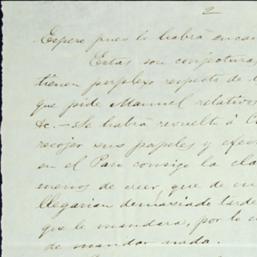 2
Espero pues lo habrá encon
Estas son conjeturas
tienen perplexo respecto de l
que pide Manuel relativos
&c. — Se habrá resuelto á
recojer sus papeles y efec
en el Pan consigo la cla
menos de creer, que de
llegarian demasiado tarde
que le mandara, por lo
de mandar nada.